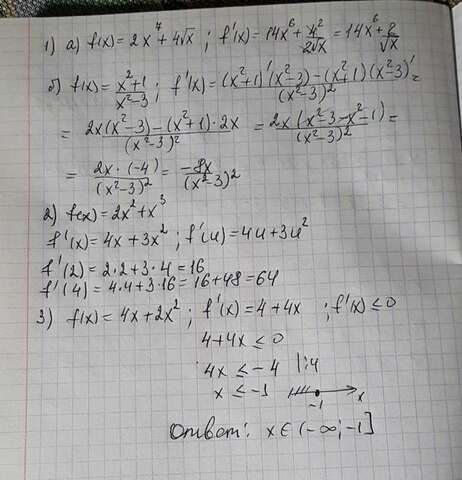 1) а) f(x) = 2x⁷ + 4√x ; f'(x) = 14x⁶ + 4²/2√x = 14x⁶ + 2/√x
б) f(x) = (x²+1)/(x²-3) ; f'(x) = ((x²+1)'(x²-3) - (x²+1)(x²-3)')/(x²-3)² =
= (2x(x²-3) - (x²+1)·2x)/(x²-3)² = (2x(x²-3-x²-1))/(x²-3)² =
= (2x·(-4))/(x²-3)² = (-8x)/(x²-3)²
2) f(x) = 2x² + x³
f'(x) = 4x + 3x² ; f'(4) = 4·4 + 3·4²
f'(2) = 2·2 + 3·4 = 16
f'(4) = 4·4 + 3·16 = 16 + 48 = 64
3) f(x) = 4x + 2x² ; f'(x) = 4 + 4x ; f'(x) ≤ 0
4 + 4x ≤ 0
4x ≤ -4 |:4
x ≤ -1
-1 x
Ответ: x ∈ (-∞; -1]